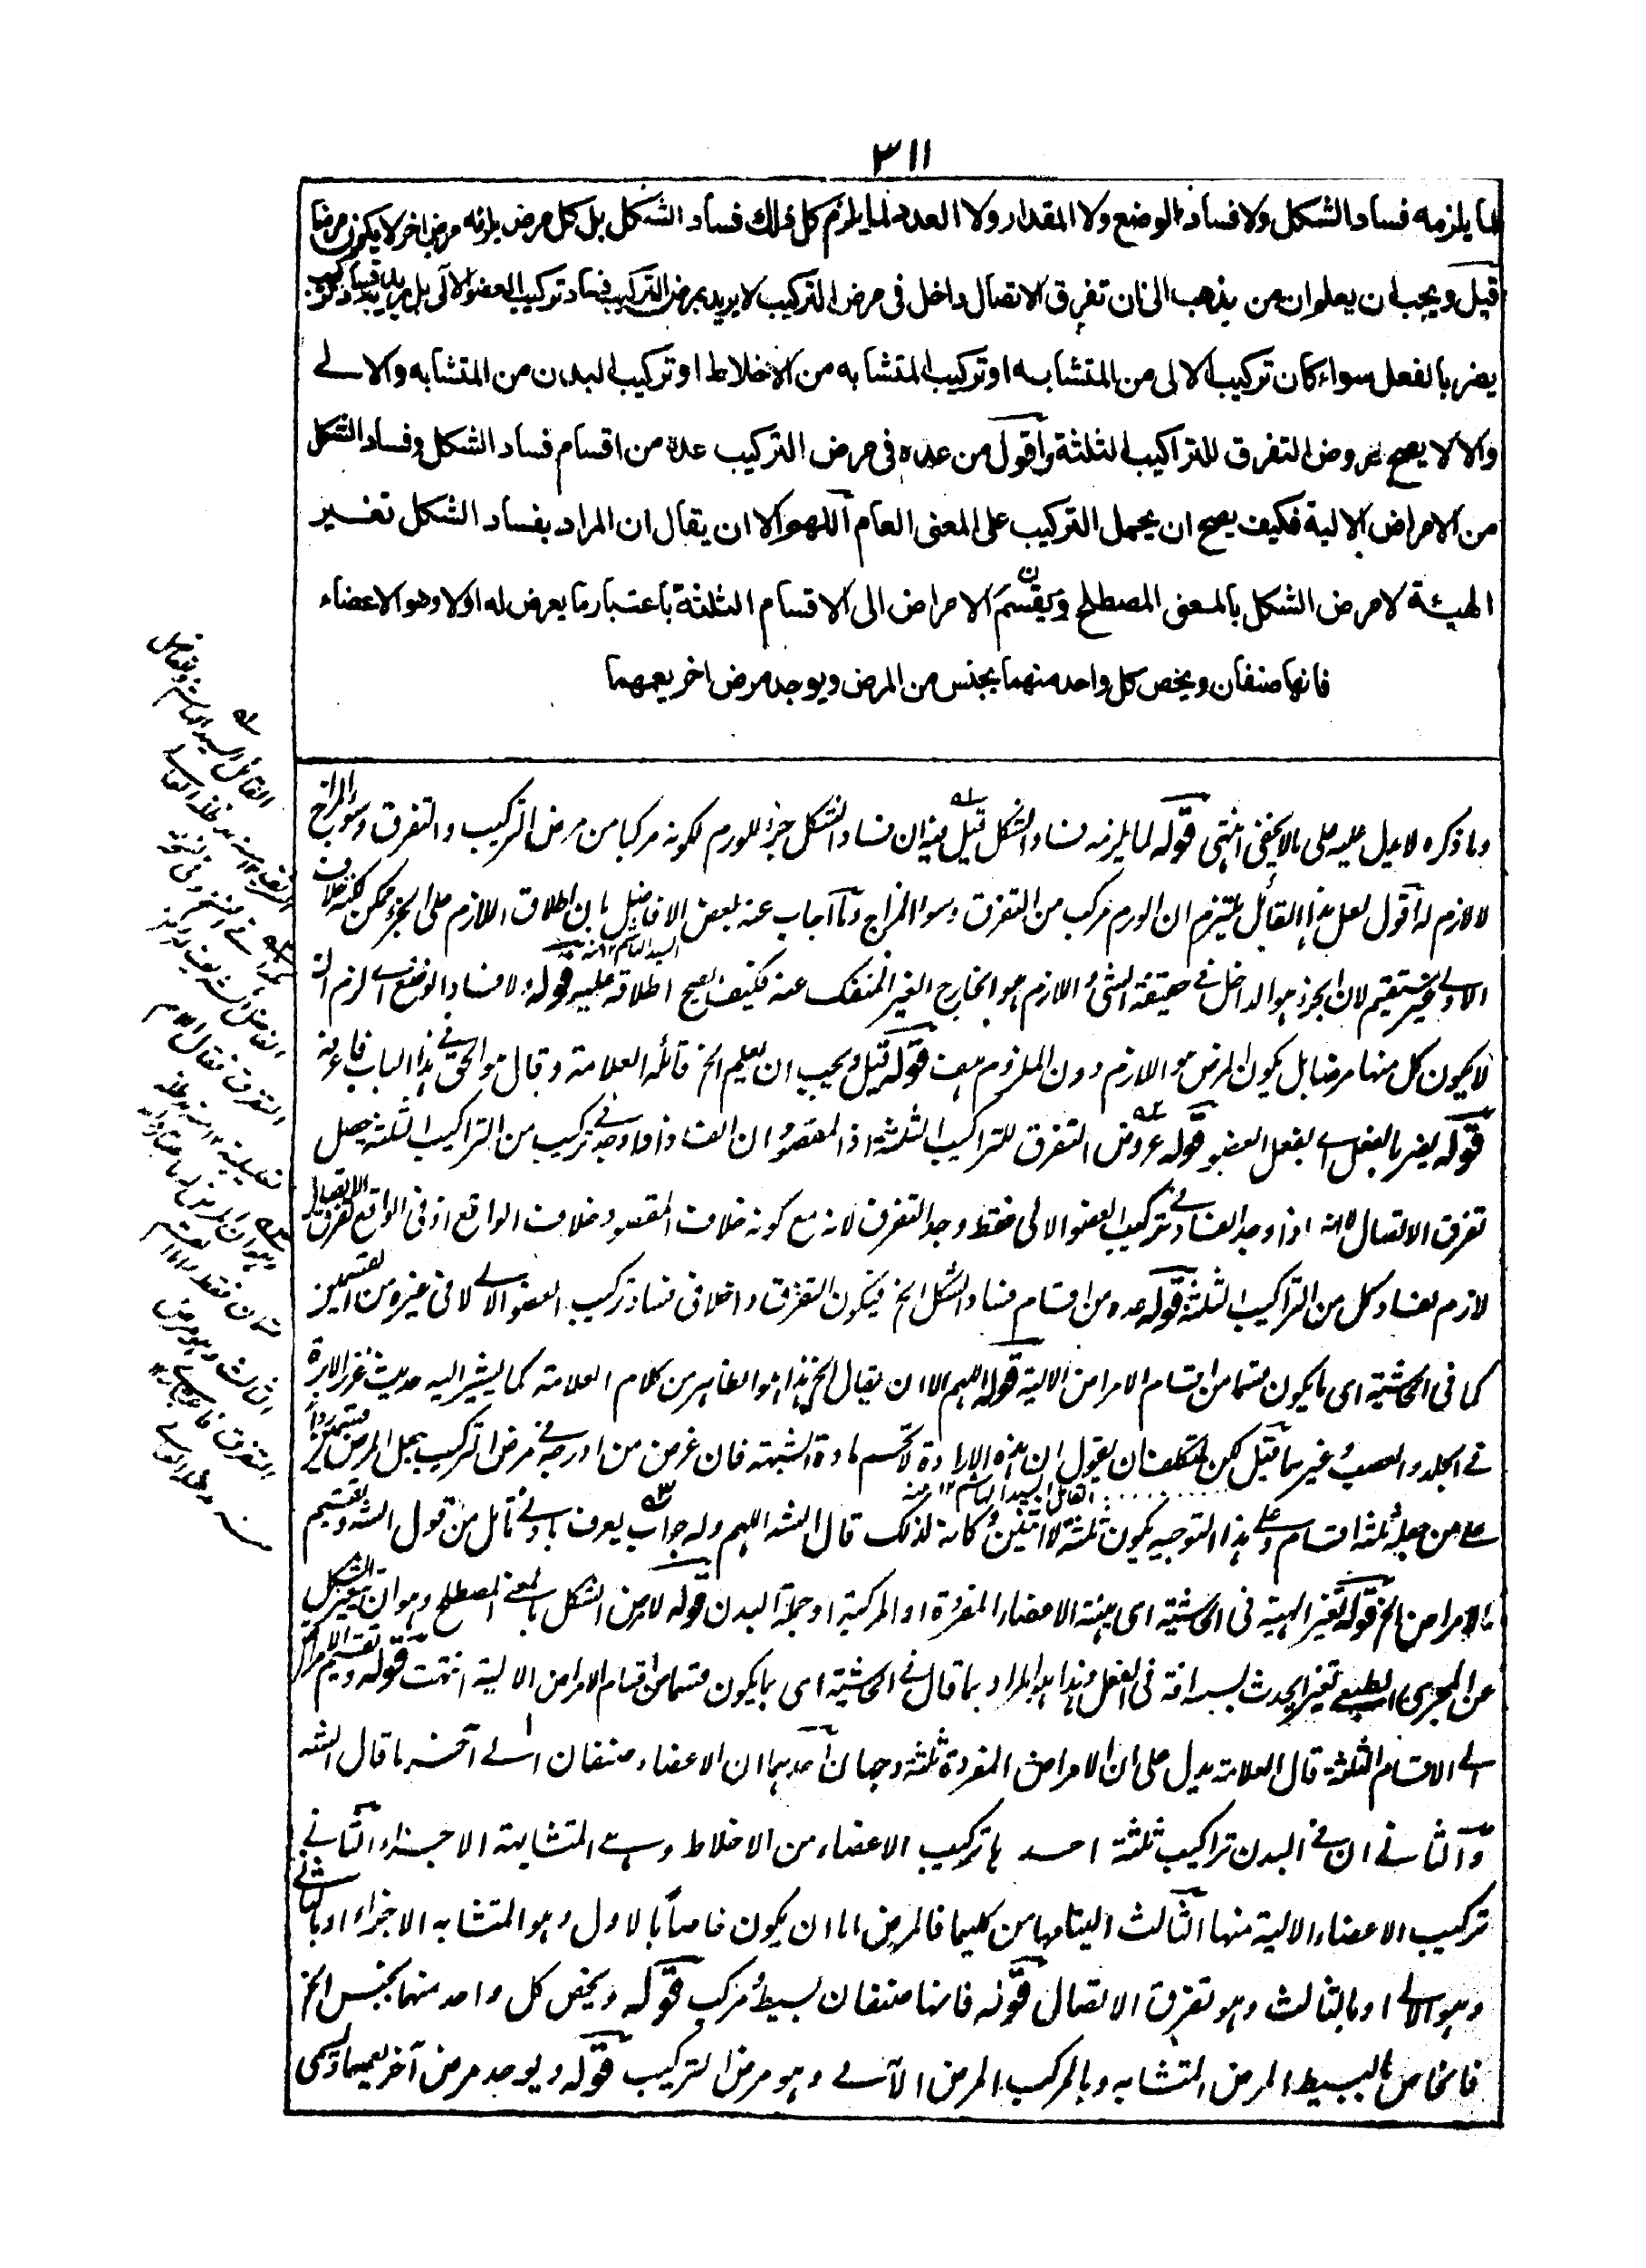 ٣١١
لما يلزمه فساد الشكل ولا فساد الوضع ولا المقدار ولا العدد لما يلزم كل ذلك فساد الشكل بل كل مرض يلزمه مرض اخر لا يكون مرضا
قيل ويجب ان يعلم ان من يذهب الى ان تفرق الاتصال داخل فى مرض التركيب لا يريد بمرض التركيب فساد تركيب العضو الآلى بل يريد به فساد تركيب
يضر بالفعل سواء كان تركيب الالى من المتشابه او تركيب المتشابه من الاخلاط او تركيب البدن من المتشابه والالے
والا لا يصح عروض التفرق للتراكيب الثلثة واقول من عده فى مرض التركيب عده من اقسام فساد الشكل وفساد الشكل
من الامراض الالية فكيف يصح ان يحمل التركيب على المعنى العام اللهم الا ان يقال ان المراد بفساد الشكل تغيير
الهيئة لا مرض الشكل بالمعنى المصطلح ويقسم الامراض الى الاقسام الثلثة باعتبار ما يعرض له اولا وهو الاعضاء
فانها صنفان ويخص كل واحد منهما بجنس من المرض ويوجد مرض اخر يعمهما
وما ذكره لا يدل عليه على ما لا يخفى انتهى قوله لما يلزمه فساد الشكل قيل فيه ان فساد الشكل جزء للورم لكونه مركبا من مرض التركيب والتفرق وسوء المزاج
لا لازم له اقول لعل هذا القائل يلتزم ان الورم مركب من التفرق وسوء المزاج وما اجاب عنه بعض الافاضل بان اطلاق اللازم على الجزء ممكن لكنه خلاف
الاولے غير مستقيم لان الجزء هو الداخل فے حقيقة الشئ واللازم هو الخارج الغير المنفك عنه فكيف يصح اطلاقه عليه قوله ولا فساد الوضع اے لزم ان
لا يكون كل منها مرضا بل يكون المرض هو اللازم دون الملزوم هف قوله قيل ويجب ان يعلم الخ قائله العلامة وقال هو الحق فے هذا الباب فاعرفه
قوله يضر بالفعل اے بفعل العضو قوله عروض التفرق للتراكيب الثلثة اذ المقصود ان الفساد اذا وجد فے تركيب من التراكيب الثلثة حصل
تفرق الاتصال لا انه اذا وجد الفساد فے تركيب العضو الالى فقط وجد التفرق لانه مع كونه خلاف المقصود خلاف الواقع اذ فى الواقع تفرق الاتصال
لازم لفساد كل من التراكيب الثلثة قوله عده من اقسام فساد الشكل الخ فيكون التفرق داخلا فى فساد تركيب العضو الالے لا فى غيره من القسمين
كما فى الحاشية اى ما يكون قسما من اقسام الامراض الالية قوله اللهم الا ان يقال الخ هذا هو الظاهر من كلام العلامة كما يشير اليه حديث غرز الابرة
فے الجلد والعصب وغيرهما قيل لكن لمتكلف ان يقول ان هذه الارادة لا تحسم مادة الشبهة فان غرض من ادرجه فے مرض التركيب يجعل المرض
على من جعله ثلثة اقسام وعلى هذا التوجيه يكون ثلثة لا اثنين وكانه لذلك قال الشه اللهم وله جواب يعرف بادنى تامل من قول الشه وتقسيم
الامراض الخ قوله تغير الهيئة فى الحاشية اى هيئة الاعضاء المفردة او المركبة او جملة البدن قوله لا مرض الشكل بالمعنى المصطلح وهو ان يتغير الشكل
عن المجرى الطبيعے تغيرا يحدث بسببه افة فى الفعل وهذا هو المراد بما قال فے الحاشية اى ما يكون قسما من اقسام الامراض الالية انتهت قوله وتقسيم الامراض
الے الاقسام الثلثة قال العلامة يدل على ان الامراض المفردة ثلثة وجهان احدهما ان الاعضاء صنفان الے آخر ما قال الشه
والثانے ان فے البدن تراكيب ثلثة احدها تركيب الاعضاء من الاخلاط وهے المتشابهة الاجزاء الثانے
تركيب الاعضاء الالية منها الثالث التيامها من كليهما فالمرض اما ان يكون خاصا بالاول وهو المتشابه الاجزاء او بالثانے
وهو الالے او بالثالث وهو تفرق الاتصال قوله فانها صنفان بسيط ومركب قوله ويخص كل واحد منهما بجنس الخ
فالخاص بالبسيط المرض المتشابه وبالمركب المرض الآلے وهو مرض التركيب قوله ويوجد مرض آخر يعمهما ويسمى